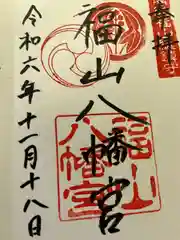 奉拝
福山八幡宮
令和六年十一月十八日
福山
八幡宮